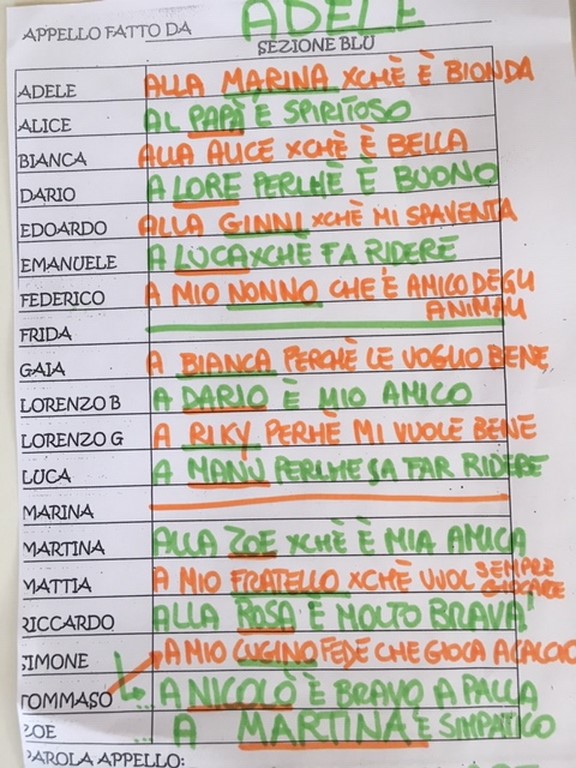 APPELLO FATTO DA ADELE
SEZIONE BLU
ADELE ALLA MARINA XCHÈ È BIONDA
ALICE AL PAPÀ È SPIRITOSO
BIANCA ALLA ALICE XCHÈ È BELLA
DARIO A LORE PERCHÈ È BUONO
EDOARDO ALLA GINNI XCHÈ MI SPAVENTA
EMANUELE A LUCA XCHÈ FA RIDERE
FEDERICO A MIO NONNO CHE È AMICO DEGLI
ANIMALI
FRIDA
GAIA A BIANCA PERCHÈ LE VOGLIO BENE
LORENZO B A DARIO È MIO AMICO
LORENZO G A RIKY PERHÈ MI VUOLE BENE
LUCA A MANU PERCHE SA FAR RIDERE
MARINA
MARTINA ALLA ZOE XCHÈ È MIA AMICA
MATTIA A MIO FRATELLO XCHÈ VUOL SEMPRE
GIOCARE
RICCARDO ALLA ROSA È MOLTO BRAVA
SIMONE A MIO CUGINO FEDE CHE GIOCA A CALCIO
TOMMASO ... A NICOLÒ È BRAVO A PALLA
ZOE ... A MARTINA È SIMPATICO
PAROLA APPELLO: